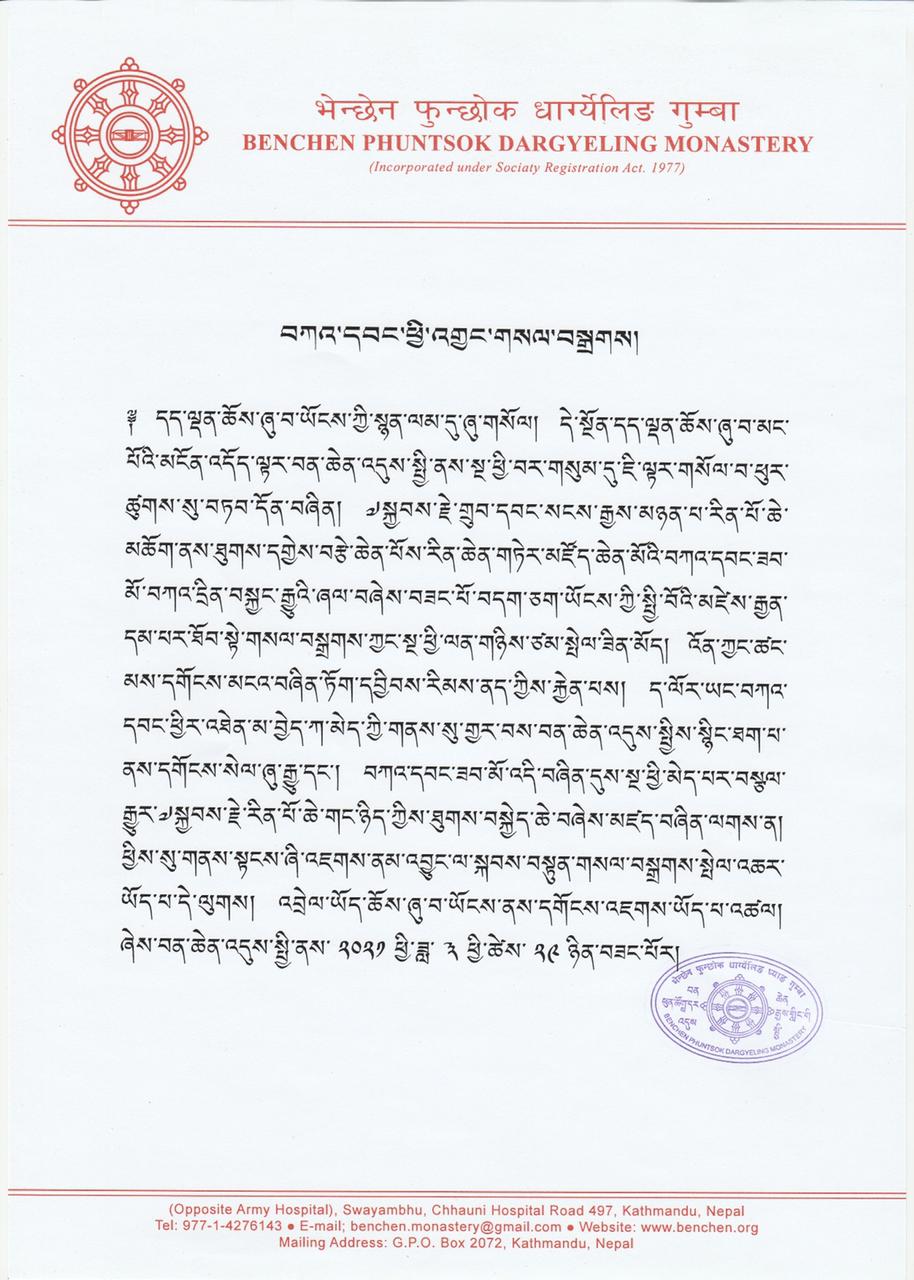 भेन्छेन फुन्छोक धार्ग्येलिङ गुम्बा
BENCHEN PHUNTSOK DARGYELING MONASTERY
(Incorporated under Sociaty Registration Act. 1977)
བཀའ་དབང་ཕྱི་འགྱང་གསལ་བསྒྲགས།
༄༅ དད་ལྡན་ཆོས་ཞུ་བ་ཡོངས་ཀྱི་སྙན་ལམ་དུ་ཞུ་གསོལ། དེ་སྔོན་དད་ལྡན་ཆོས་ཞུ་བ་མང་
པོའི་མངོན་འདོད་ལྟར་བན་ཆེན་འདུས་སྤྱི་ནས་སྔ་ཕྱི་བར་གསུམ་དུ་ཇི་ལྟར་གསོལ་བ་ཕུར་
ཚུགས་སུ་བཏབ་དོན་བཞིན། ༧སྐྱབས་རྗེ་གྲུབ་དབང་སངས་རྒྱས་མཉན་པ་རིན་པོ་ཆེ་
མཆོག་ནས་ཐུགས་དགྱེས་བརྩེ་ཆེན་པོས་རིན་ཆེན་གཏེར་མཛོད་ཆེན་མོའི་བཀའ་དབང་ཟབ་
མོ་བཀའ་དྲིན་བསྐྱང་རྒྱུའི་ཞལ་བཞེས་བཟང་པོ་བདག་ཅག་ཡོངས་ཀྱི་སྤྱི་བོའི་མཛེས་རྒྱན་
དམ་པར་ཐོབ་སྟེ་གསལ་བསྒྲགས་ཀྱང་སྔ་ཕྱི་ལན་གཉིས་ཙམ་སྤེལ་ཟིན་མོད། འོན་ཀྱང་ཚང་
མས་དགོངས་མངའ་བཞིན་ཏོག་དབྱིབས་རིམས་ནད་ཀྱིས་རྐྱེན་པས། ད་ལོར་ཡང་བཀའ་
དབང་ཕྱིར་འཐེན་མ་བྱེད་ཀ་མེད་ཀྱི་གནས་སུ་གྱར་བས་བན་ཆེན་འདུས་སྤྱིས་སྙིང་ཐག་པ་
ནས་དགོངས་སེལ་ཞུ་རྒྱུ་དང་། བཀའ་དབང་ཟབ་མོ་འདི་བཞིན་དུས་སྔ་ཕྱི་མེད་པར་བསྩལ་
རྒྱུར་༧སྐྱབས་རྗེ་རིན་པོ་ཆེ་གང་ཉིད་ཀྱིས་ཐུགས་བསྐྱེད་ཆེ་བཞེས་མཛད་བཞིན་ལགས་ན།
ཕྱིས་སུ་གནས་སྟངས་ཞི་འཇགས་ནམ་འབྱུང་ལ་སྐབས་བསྟུན་གསལ་བསྒྲགས་སྤེལ་འཆར་
ཡོད་པ་དེ་ལུགས། འབྲེལ་ཡོད་ཆོས་ཞུ་བ་ཡོངས་ནས་དགོངས་འཇགས་ཡོད་པ་འཚལ།
ཞེས་བན་ཆེན་འདུས་སྤྱི་ནས་ ༢༠༢༡ ཕྱི་ཟླ་ ༣ ཕྱི་ཚེས་ ༢༩ ཉིན་བཟང་པོར།
BENCHEN PHUNTSOK DARGYELING MONASTERY
(Opposite Army Hospital), Swayambhu, Chhauni Hospital Road 497, Kathmandu, Nepal
Tel: 977-1-4276143 ● E-mail; benchen.monastery@gmail.com ● Website: www.benchen.org
Mailing Address: G.P.O. Box 2072, Kathmandu, Nepal